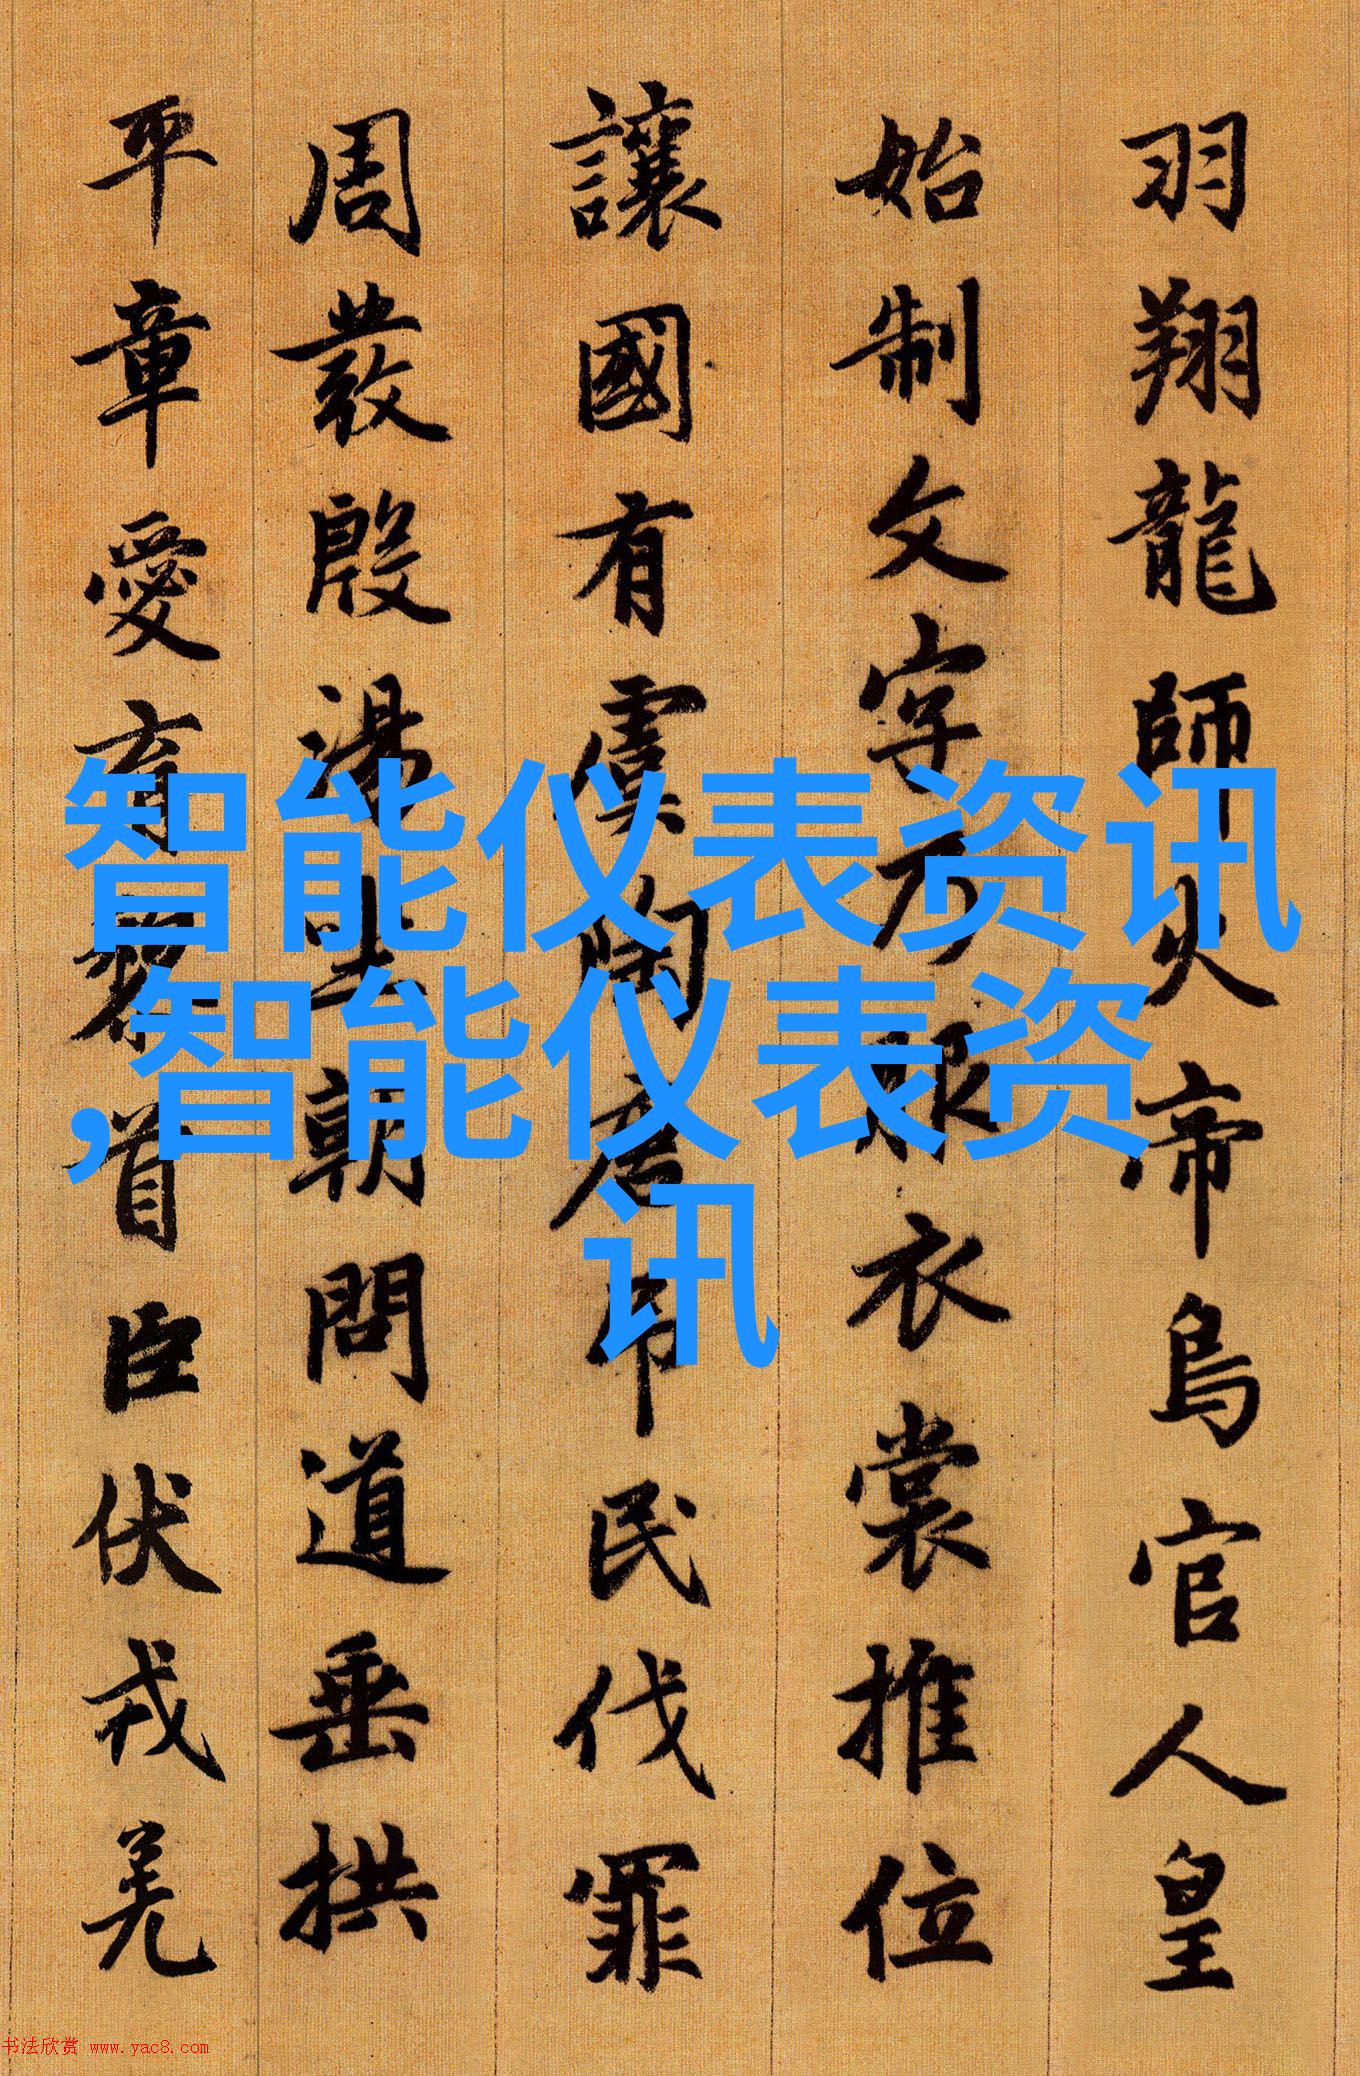 羽翔龍師火帝鳥官人皇
始制文字乃服衣裳推位
讓國有虞陶唐吊民伐罪
周發殷湯坐朝問道垂拱
平章愛育黎首臣伏戎羌
智能仪表资讯
,智能仪表资
讯
书法欣赏 www.yac8.com